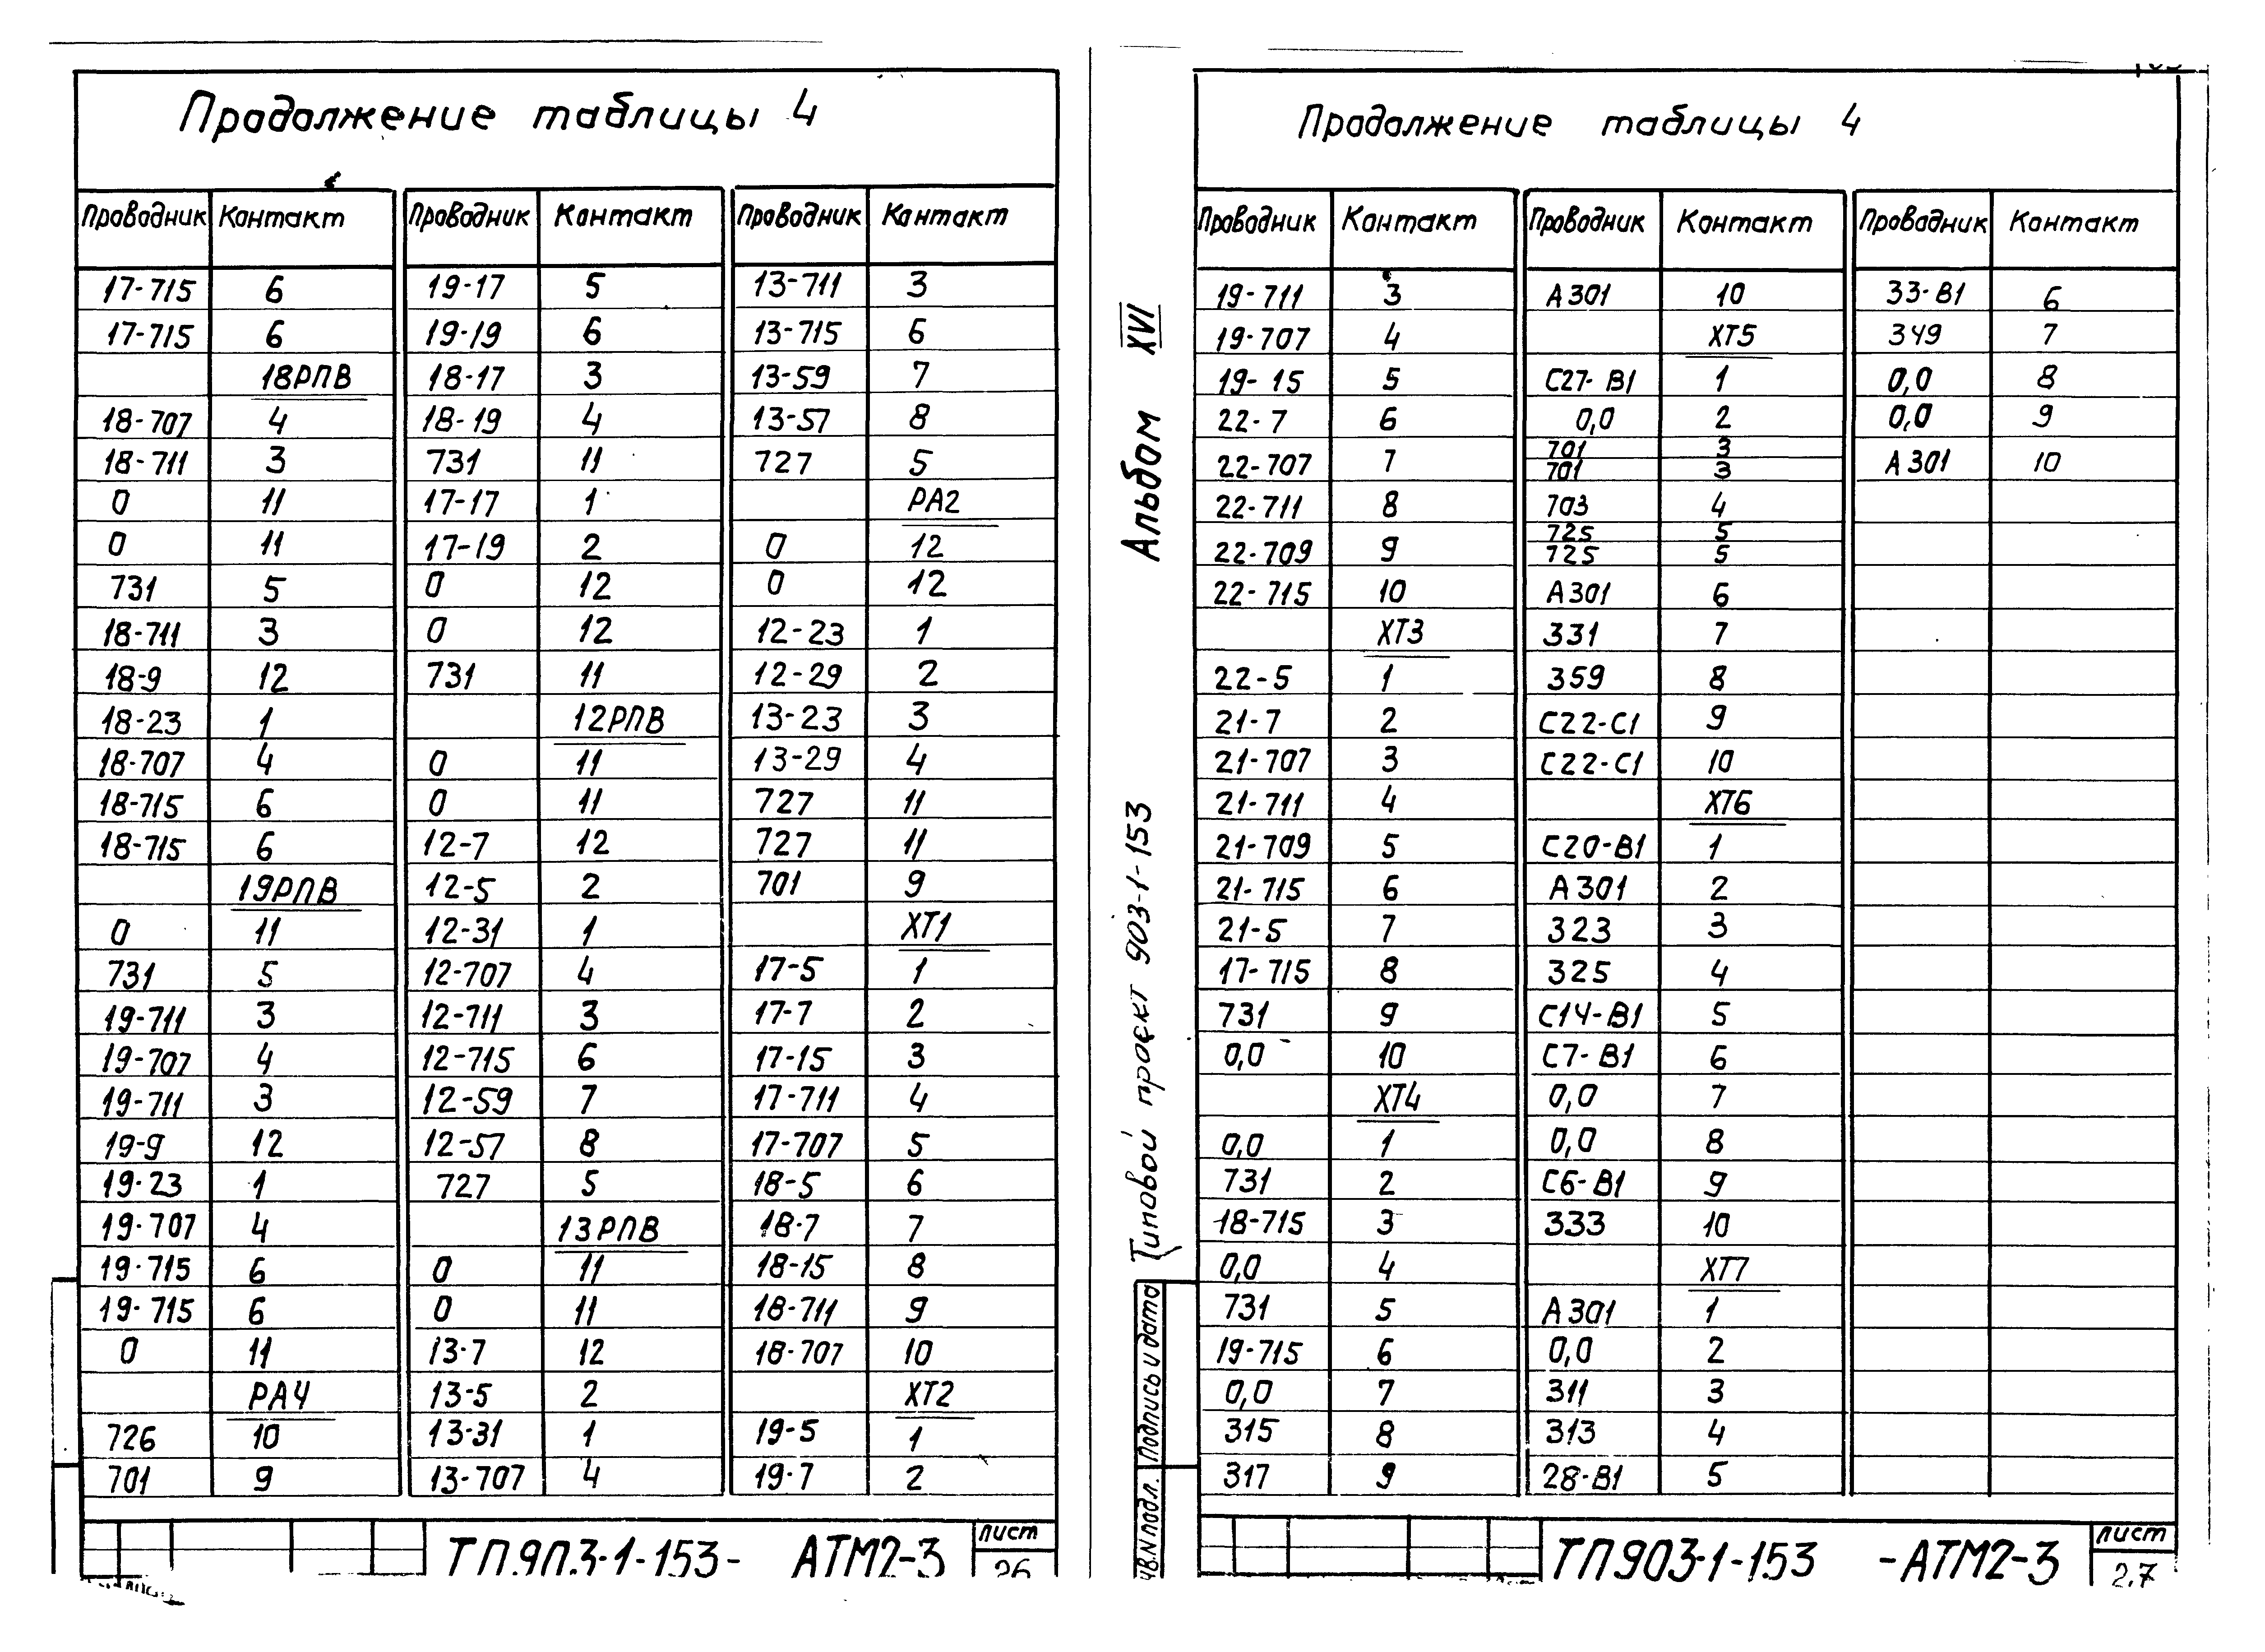 Продолжение таблицы 4
Проводник Контакт Проводник Контакт Проводник Контакт
17-715 6 19-17 5 13-711 3
17-715 6 19-19 6 13-715 6
18РПВ 18-17 3 13-59 7
18-707 4 18-19 4 13-57 8
18-711 3 731 11 727 5
0 11 17-17 1 РА2
0 11 17-19 2 0 12
731 5 0 12 0 12
18-711 3 0 12 12-23 1
18-9 12 731 11 12-29 2
18-23 1 12РПВ 13-23 3
18-707 4 0 11 13-29 4
18-715 6 0 11 727 11
18-715 6 12-7 12 727 11
19РПВ 12-5 2 701 9
0 11 12-31 1 ХТ1
731 5 12-707 4 17-5 1
19-711 3 12-711 3 17-7 2
19-707 4 12-715 6 17-15 3
19-711 3 12-59 7 17-711 4
19-9 12 12-57 8 17-707 5
19-23 1 727 5 18-5 6
19-707 4 13РПВ 18-7 7
19-715 6 0 11 18-15 8
19-715 6 0 11 18-711 9
0 11 13-7 12 18-707 10
РА4 13-5 2 ХТ2
726 10 13-31 1 19-5 1
701 9 13-707 4 19-7 2
ТП.9П.3-1-153- АТМ2-3
лист
26
Альбом XVI
Типовой проект 903-1-153
Подпись и дата
№ подл.
Продолжение таблицы 4
Проводник Контакт Проводник Контакт Проводник Контакт
19-711 3 А301 10 33-В1 6
19-707 4 ХТ5 349 7
19-15 5 С27-В1 1 0,0 8
22-7 6 0,0 2 0,0 9
22-707 7 701 3 А301 10
701 3
22-711 8 703 4
725 5
22-709 9 725 5
22-715 10 А301 6
ХТ3 331 7
22-5 1 359 8
21-7 2 С22-С1 9
21-707 3 С22-С1 10
21-711 4 ХТ6
21-709 5 С20-В1 1
21-715 6 А301 2
21-5 7 323 3
17-715 8 325 4
731 9 С14-В1 5
0,0 10 С7-В1 6
ХТ4 0,0 7
0,0 1 0,0 8
731 2 С6-В1 9
18-715 3 333 10
0,0 4 ХТ7
731 5 А301 1
19-715 6 0,0 2
0,0 7 311 3
315 8 313 4
317 9 28-В1 5
ТП903-1-153 -АТМ2-3
лист
2.7